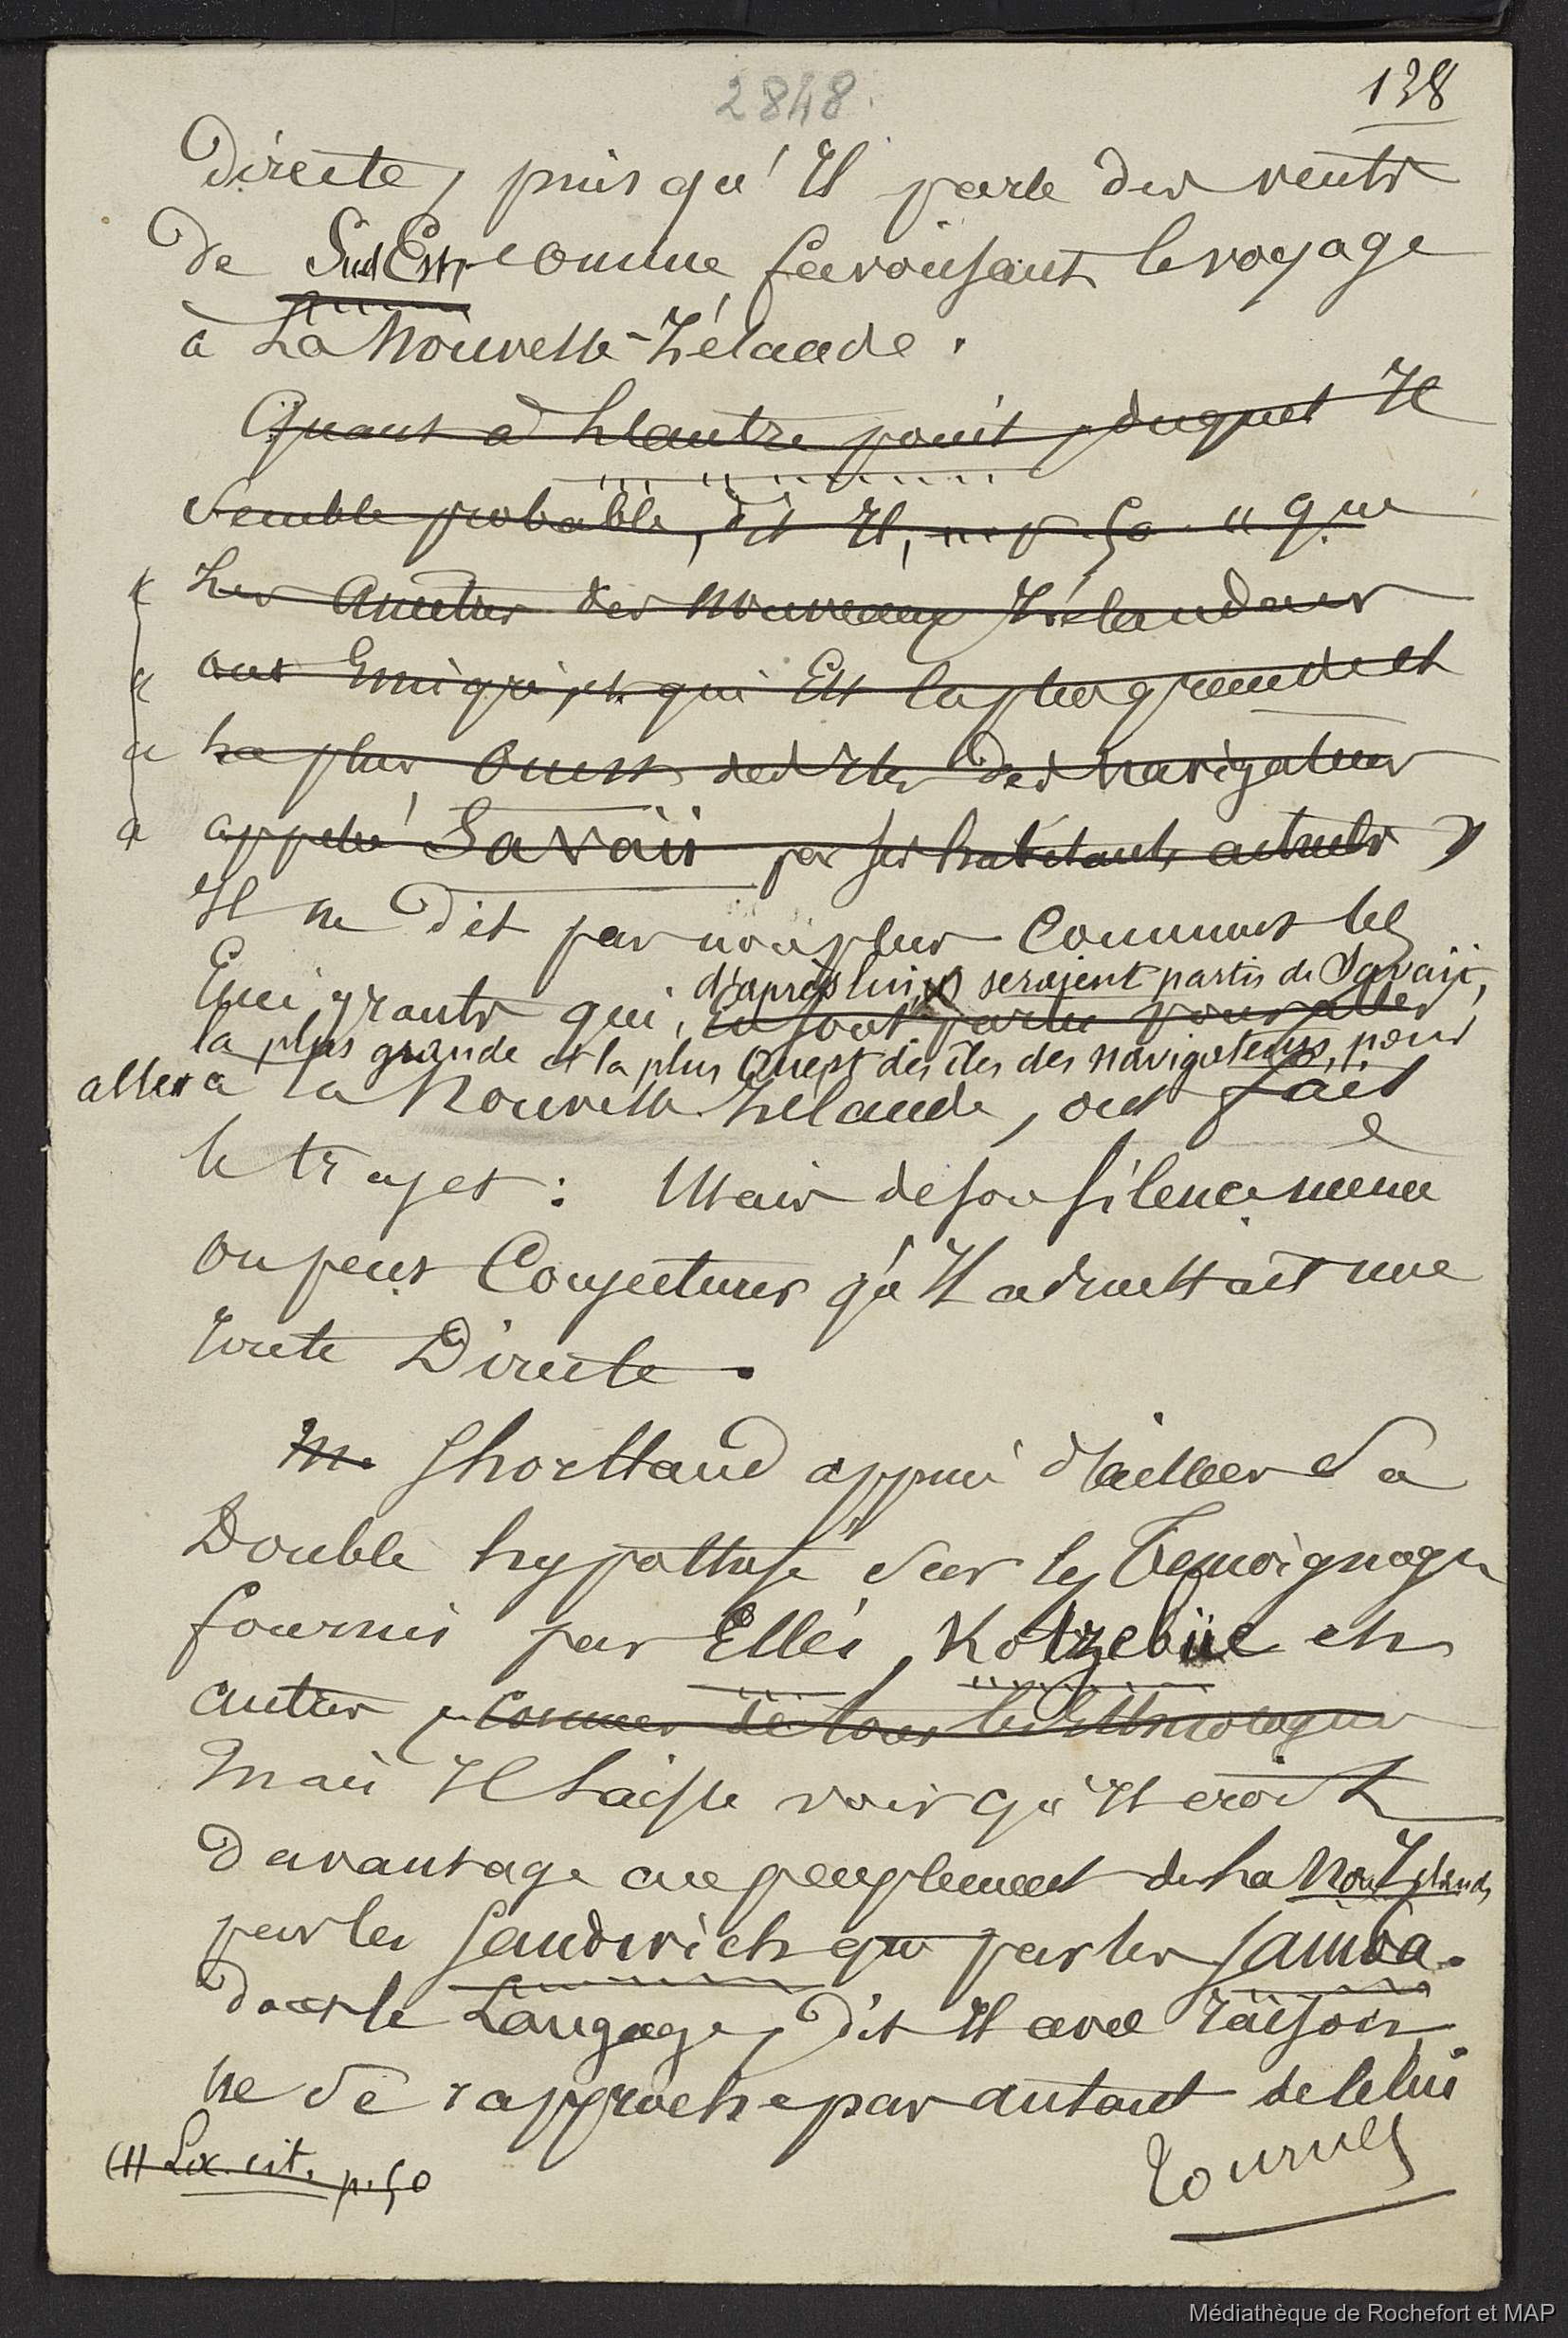 2848.
138
Directe, puisqu'Il parle des vents
de Sud Est, comme favorisant le voyage
à La Nouvelle-Zélande.
Quant à L'autre point, duquel Il
semble probable, dit Il, "que
Les Ancetres des Nouveaux Zélandais
ont Emigré, qui Est la plus grande et
La plus Ouest des Iles des Navigateurs
appelée Savaii par ses habitants actuels"
Il ne Dit pas non plus Comment les
d'après lui, seraient partis de Savaii,
Emigrants qui, en sont partis pour aller
la plus grande et la plus Ouest des îles des navigateurs, pour
aller à la Nouvelle Zélande, ont fait
le trajet : Mais de son silence même
on peut Conjecturer qu'Il admettait une
route Directe.
M. Shortland appuie d'ailleurs Sa
Double hypothèse sur les Temoignages
fournis par Ellis, Kotzebüe et
autres, connues de tous les Ethnologues
Mais Il Laisse voir qu'Il croit
Davantage au peuplement de La Nou Zélande
par les Sandwich que par les Samoa.
Dont le Langage, Dit Il avec raison
ne se rapproche pas autant de celui
(1) Loc. cit. p. 50
Tournez
Médiathèque de Rochefort et MAP